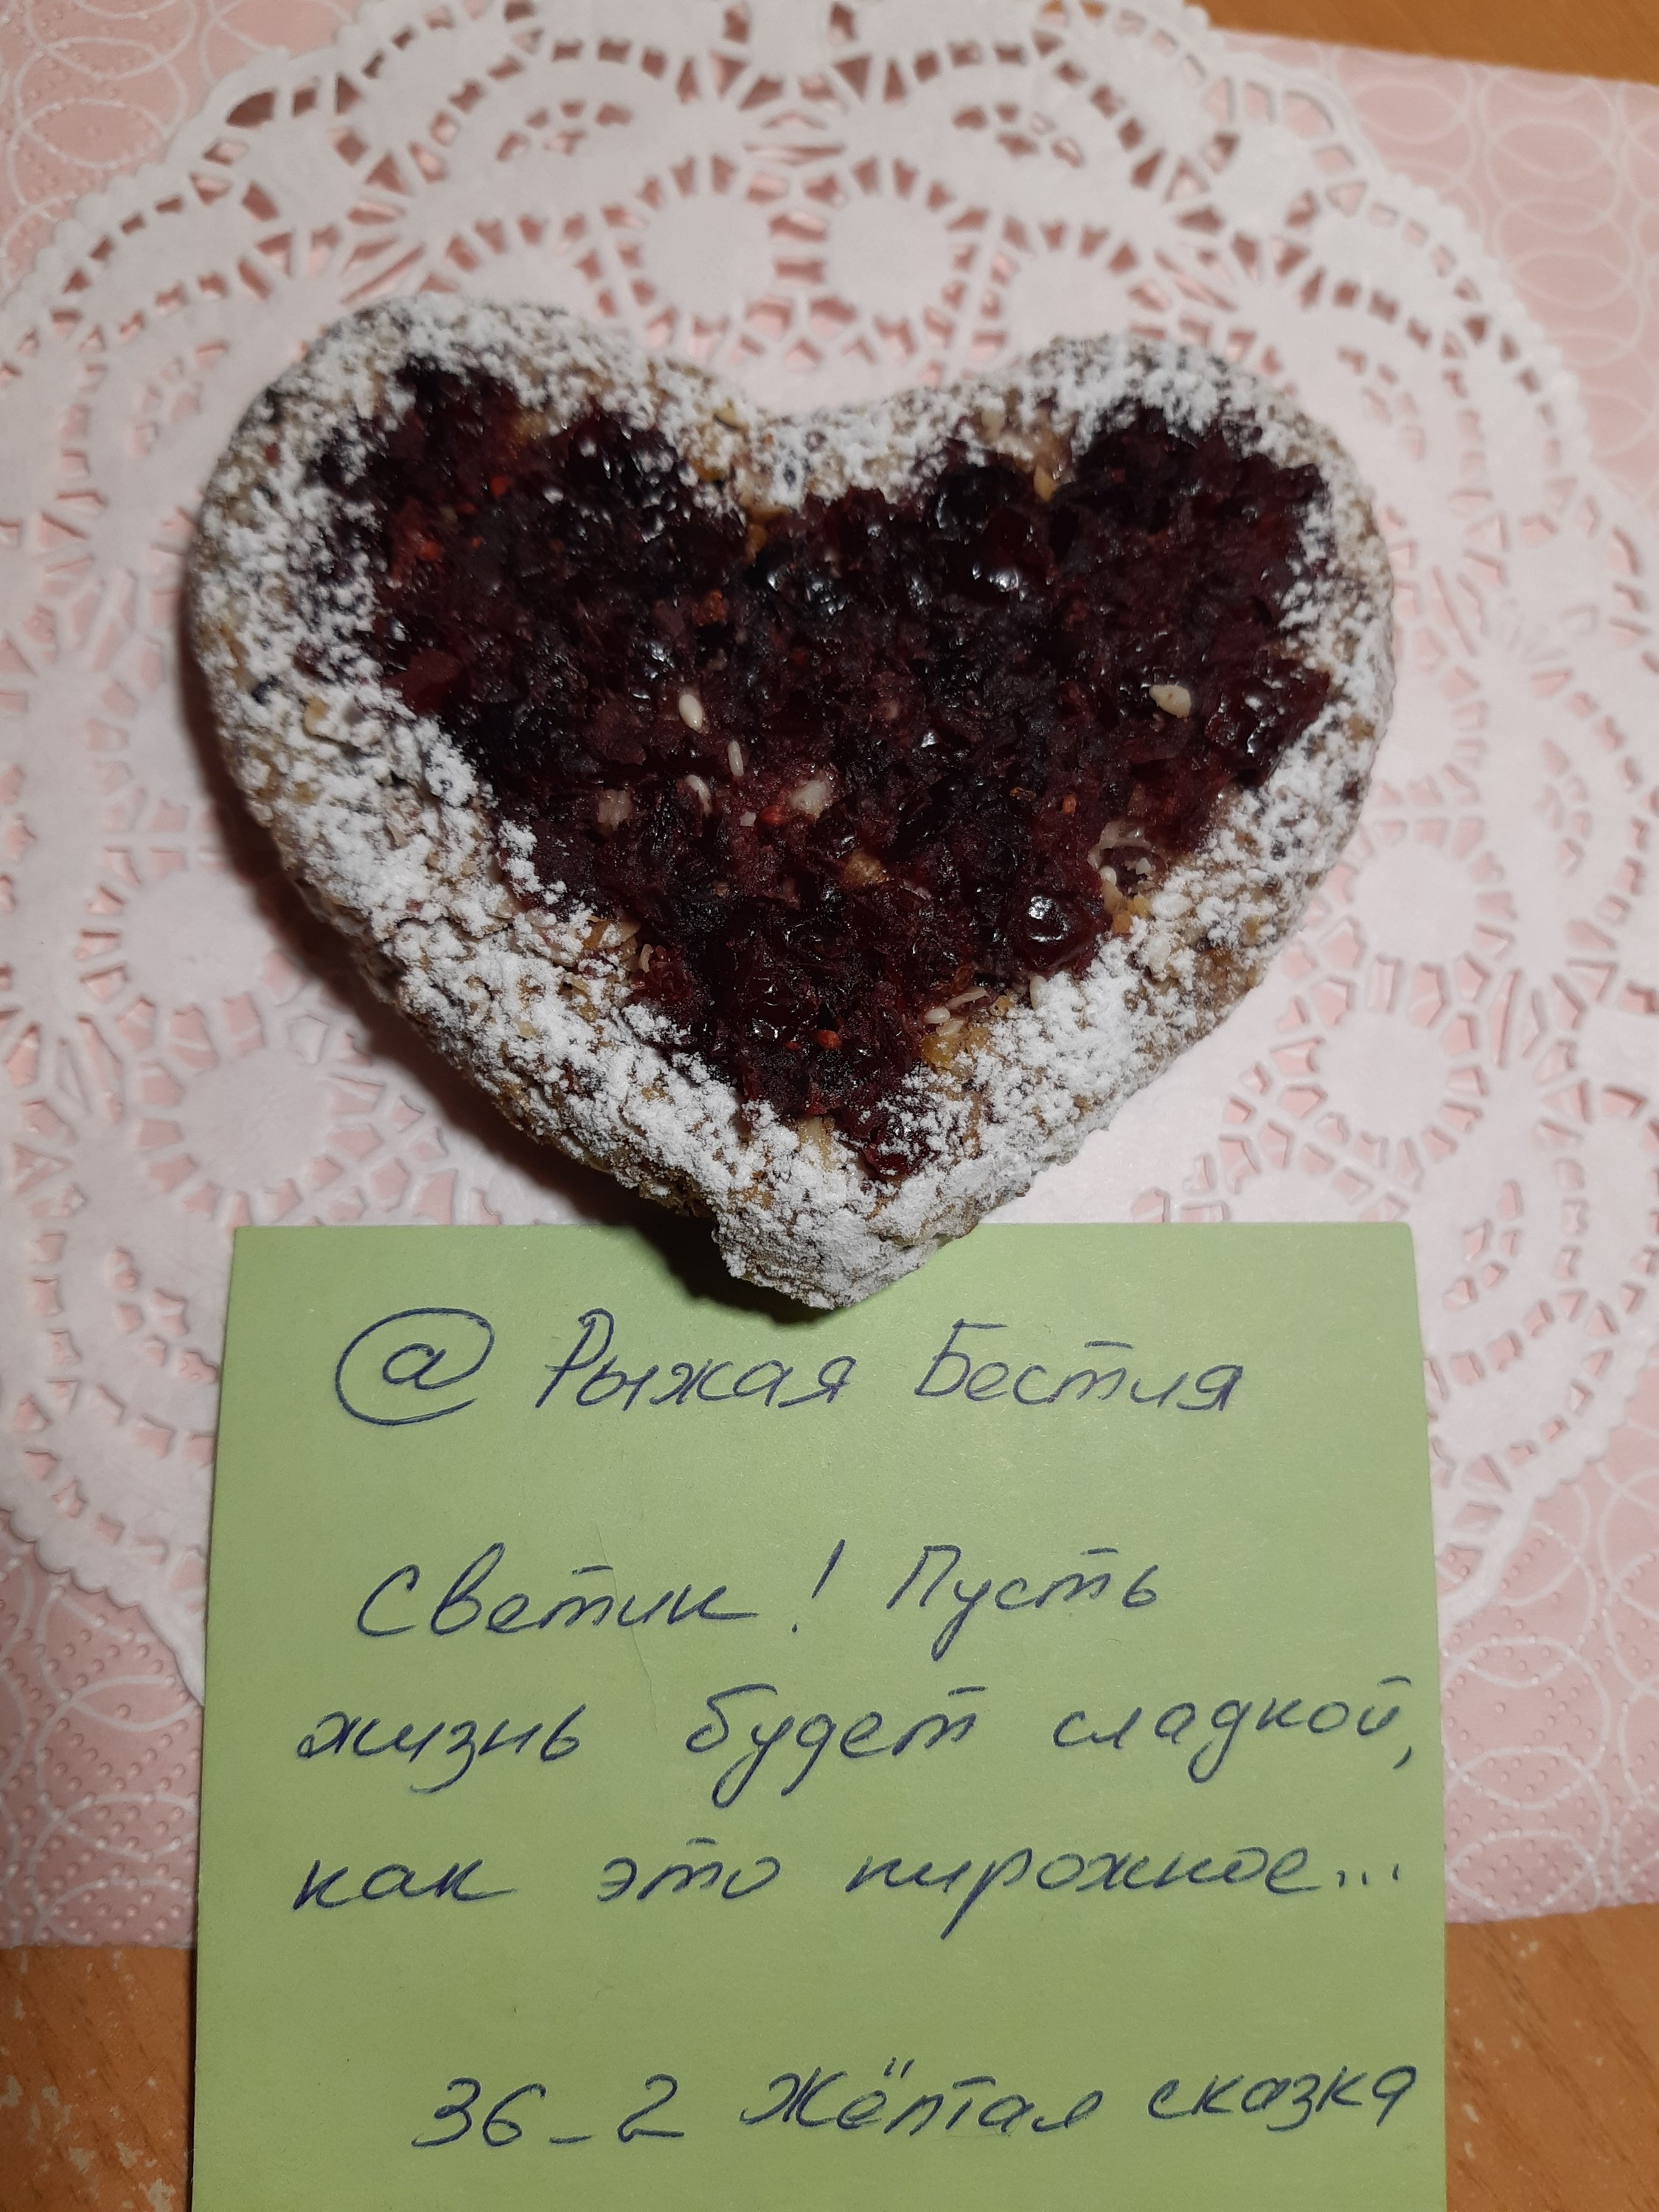 @ Рыжая Бестия
Светик! Пусть
жизнь будет сладкой,
как это пирожное...
36_2 Жёлтая сказка